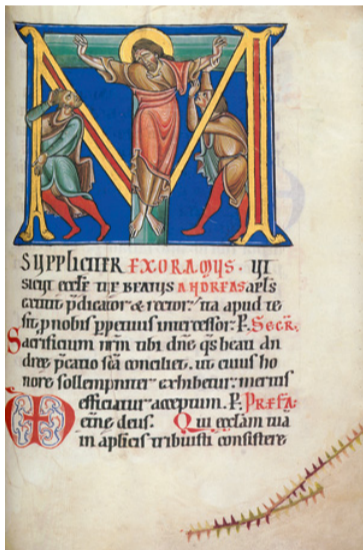 M
SUPPLICITER EXORAMUS. UT
SICUT eccłe tue BEATUS ANDREAS apłs
extitit p̄dicator & rector. ita apud te
sit ꝑ nobis ꝑpetuus intercessor. P. SECR.
Sacrificium nr̄m tibi dn̄e qs beati an
dree p̄catio sc̄a conciliet. ut cuius ho
nore sollempniter exhibetur. meritis
efficiatur acceptum. P. PREFA:
eterne deus. Qui eccłam tuā
in apłicis tribuisti consistere